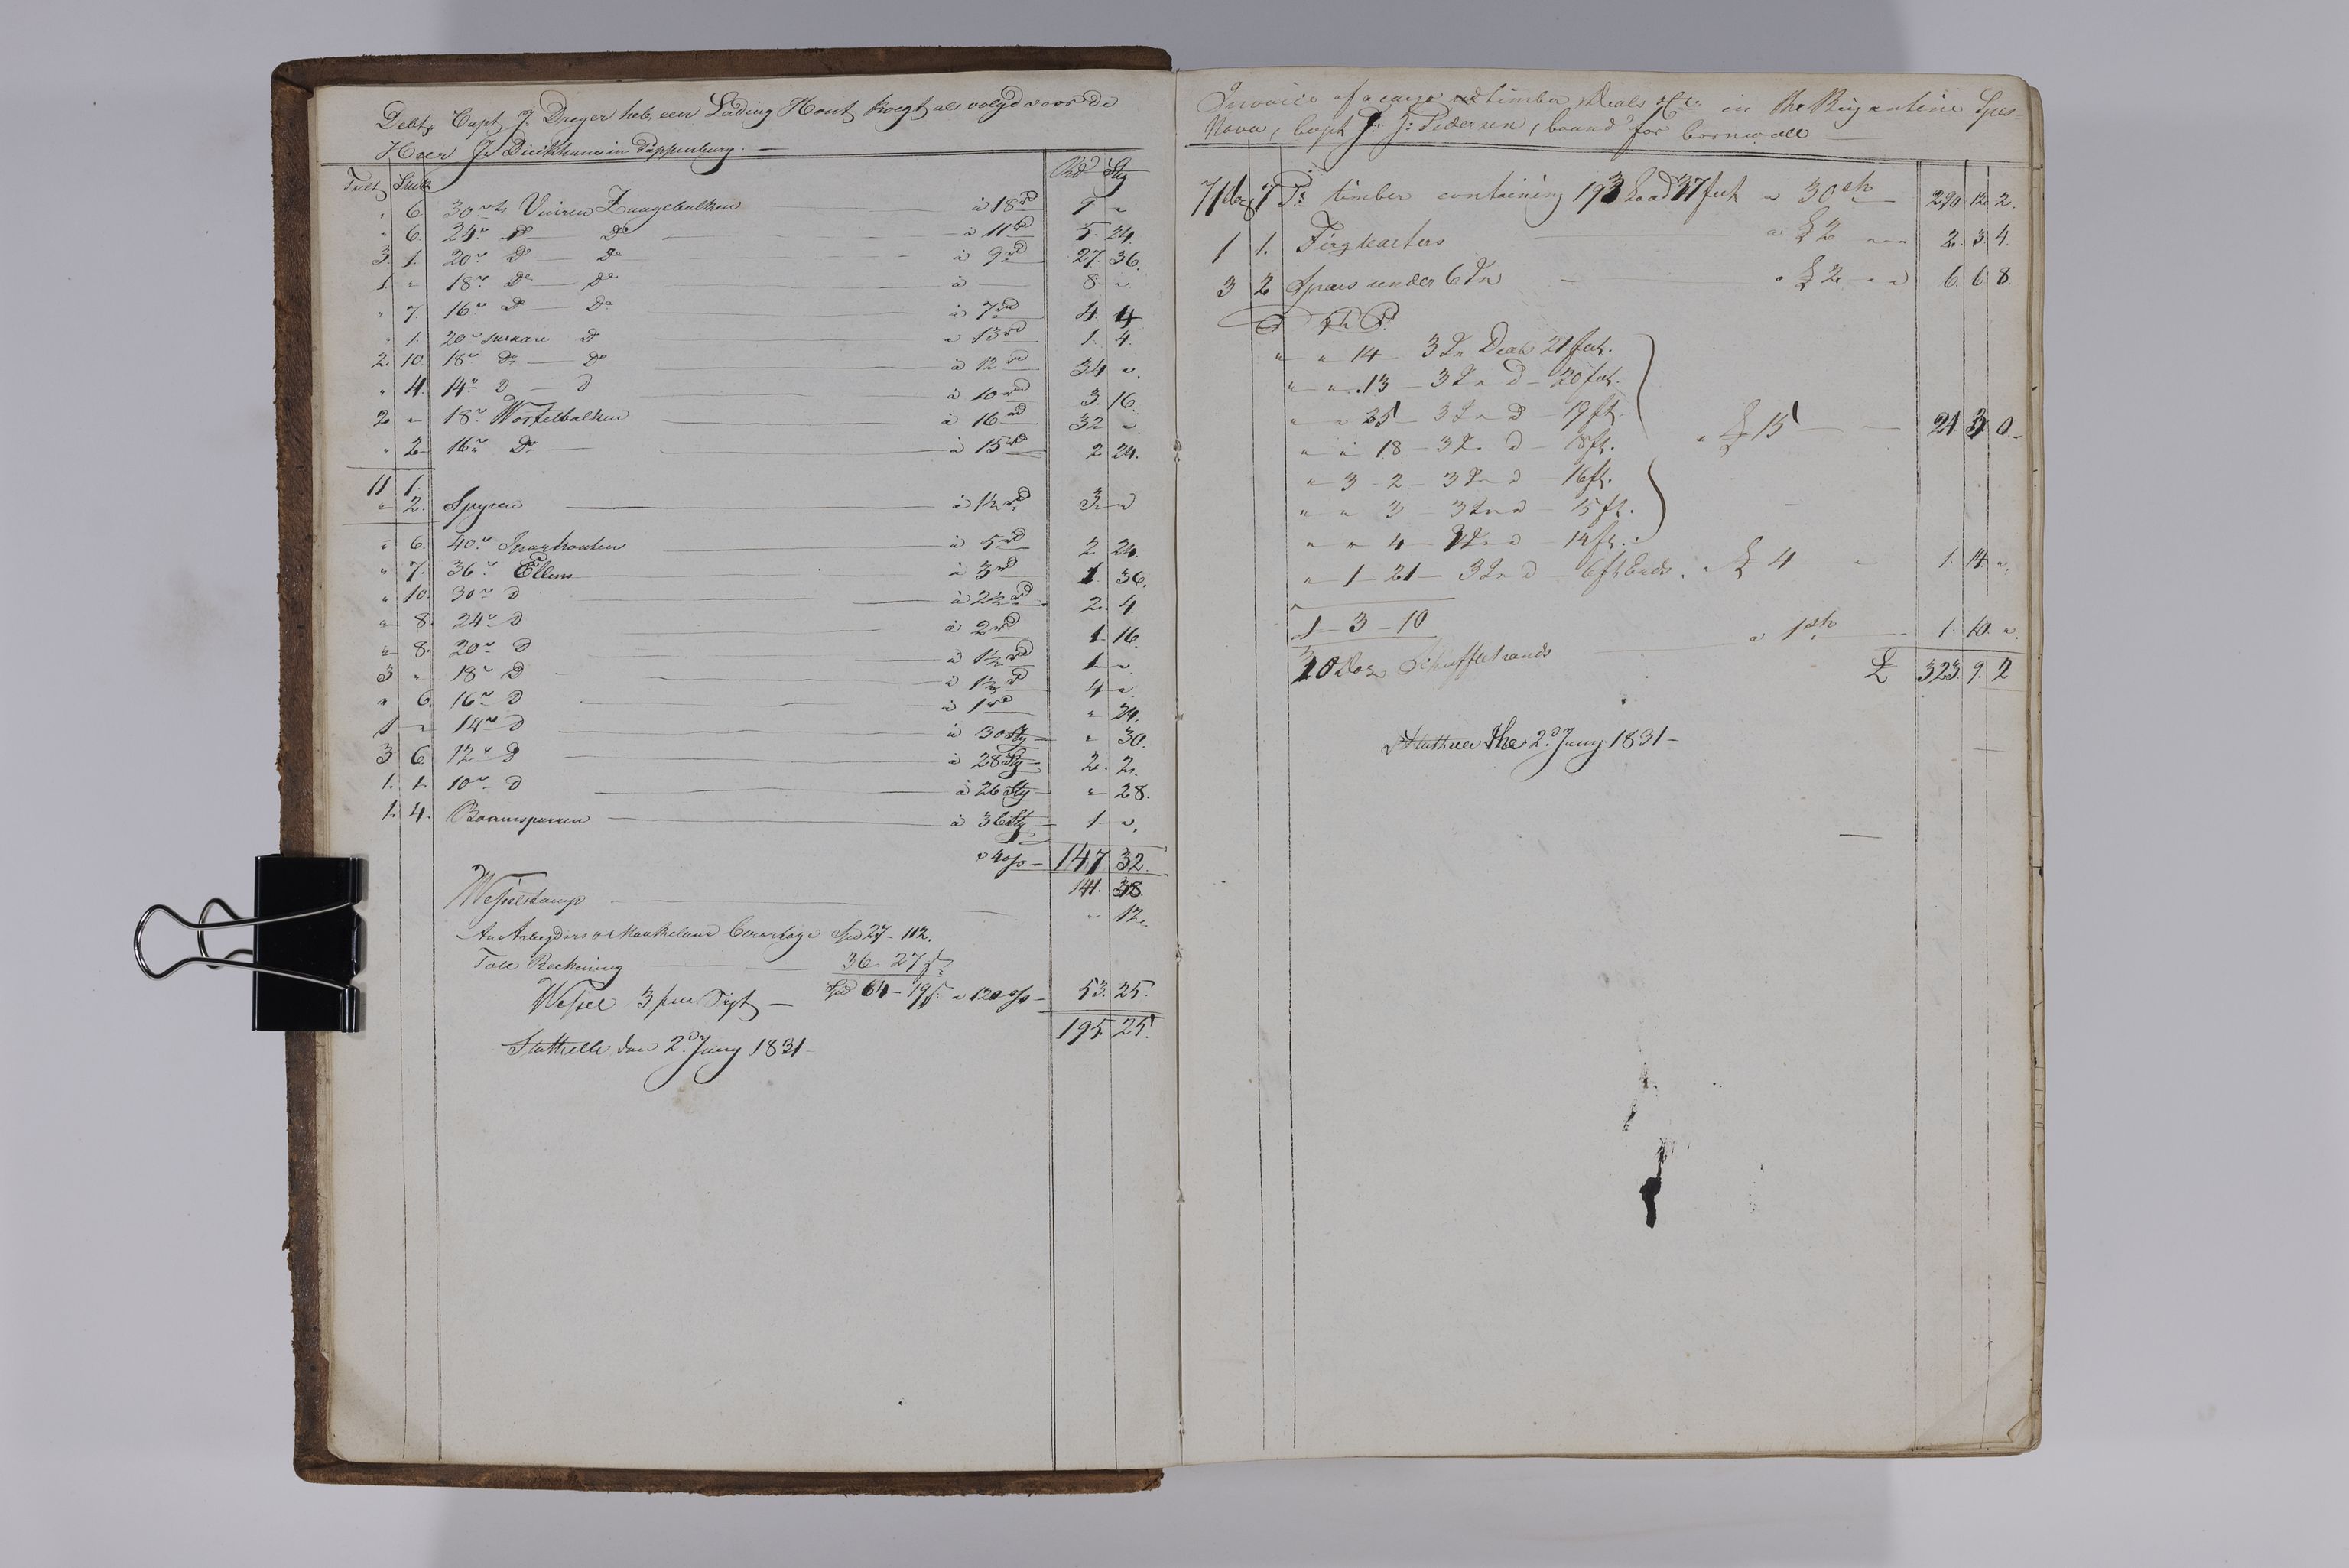 Debt, Capt, J. Dreyer heb, een Lading Hout kogt, als volgd voor de
Heer J. Dieckhaus in Pappenburg. —
Tult Stuk Rd Stg
" 6. 30 vts Vuiren Zaagebalken — à 18 rd 9 "
" 6. 24 " Do — Do — à 11 rd 5. 24.
3. 1. 20 " Do — Do — à 9 rd 27. 36.
1 " 18 " Do — Do à — 8 "
" 7. 16 " Do — Do à 7 rd 4. 4
" 1. 20 " swaare Do à 13 rd 1. 4.
2. 10. 18 " Do — Do à 12 rd 34 "
" 4. 14 " D — D à 10 rd 3. 16.
2 " 18 " Wortelbalken à 16 rd 32 "
" 2 16 " Do — à 15 rd 2 24.
11 1.
" 2. Spyren — à 1½ rd 3 "
" 6. 40 " Sparhouten à 5 rd 2 24.
" 7. 36 " Ellens — à 3 rd 1. 36.
" 10. 30 " D — à 2½ rd 2. 4.
" 8. 24 " D — à 2 rd 1. 16.
" 8. 20 " D — à 1½ rd 1 "
3 " 18 " D — à 1⅓ rd 4 "
" 6. 16 " D — à 1 rd " 24.
1 " 14 " D — à 30 Stg — " 30.
3 6. 12 " D — à 28 Stg — 2. 2.
1. 1. 10 " D — à 26 Stg — " 28.
1. 4. Boomsparren — à 36 Stg — 1 "
à 4 o/o — 147 32.
141. 38.
Wesselstamp — " 12.
An Arbeyders Courtage Spd 27 - 112.
Toll Reckning — 36. 27 ß
Wessel 3 pur Sigt — Spd 64 - 19 ß. a 120 o/o — 53. 25.
195. 25.
Stathelle den 2. Juny 1831 —
Invoice of a cargo timber, Deals &c. in the Brigantine Spes-
Nova, Capt J. J: Pedersen, bound for Cornwall —
71 doz 7 Ps timber containing 193 Load 37 feet a 30 sh — 290. 12. 2.
1 1. Firz karters a £ 2 — 2. 3. 4.
3 2 Spars under 6 In — a £ 2 — 6. 6. 8.
" " 14 — 3 In Deals 21 feet.
" " 13 — 3 In D — 20 feet.
" " 35 — 3 In D — 19 ft.
" " 18 — 3 In D — 18 ft. a £ 15 — 21 3 0.
" 3 - 2 — 3 In D — 16 ft.
" " 3 — 3 In D — 15 ft.
" " 4 — 3 In D — 14 ft.
" 1 - 21 — 3 In D — 6 ft Ends. a £ 4 " 1. 14. "
1 — 3 — 10
30 doz Schuffletrands — a 1 sh — 1. 10. "
£ 323. 9. 2
Stathelle the 2. Juny 1831 —